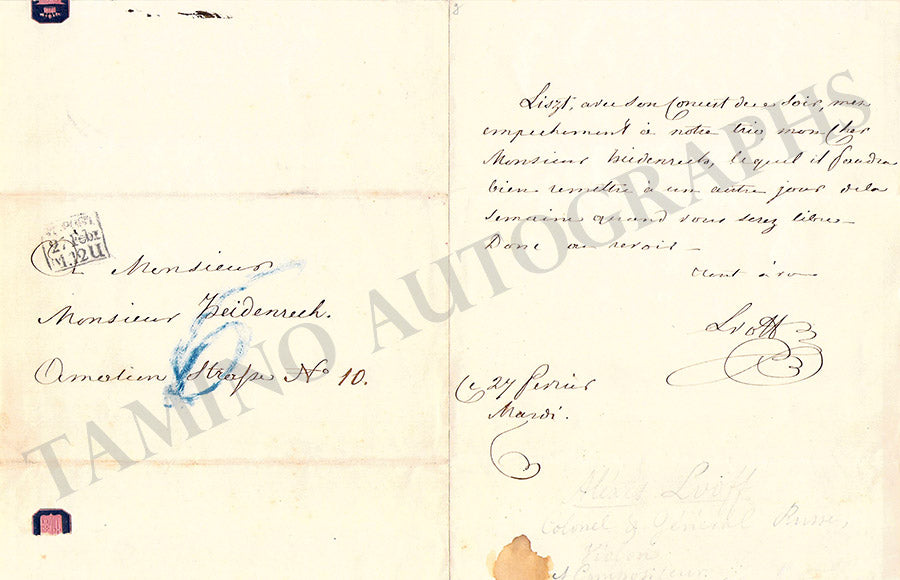 27 Febr
M. 12 U
A Monsieur
Monsieur Heidenrech.
Amalien Straße No 10.
8
Liszt, avec son Concert de ce Soir, met
empechement à notre trio mon Cher
Monsieur Heidenrech, lequel il faudra
bien remettre à un autre jour de la
Semaine quand vous serez libre
Donc au revoir
tout à vous
Lvoff
Ce 27 fevrier
Mardi.
Alexis Lvoff
Colonel & Général Russe,
Violon
et Compositeur
TAMINO AUTOGRAPHS